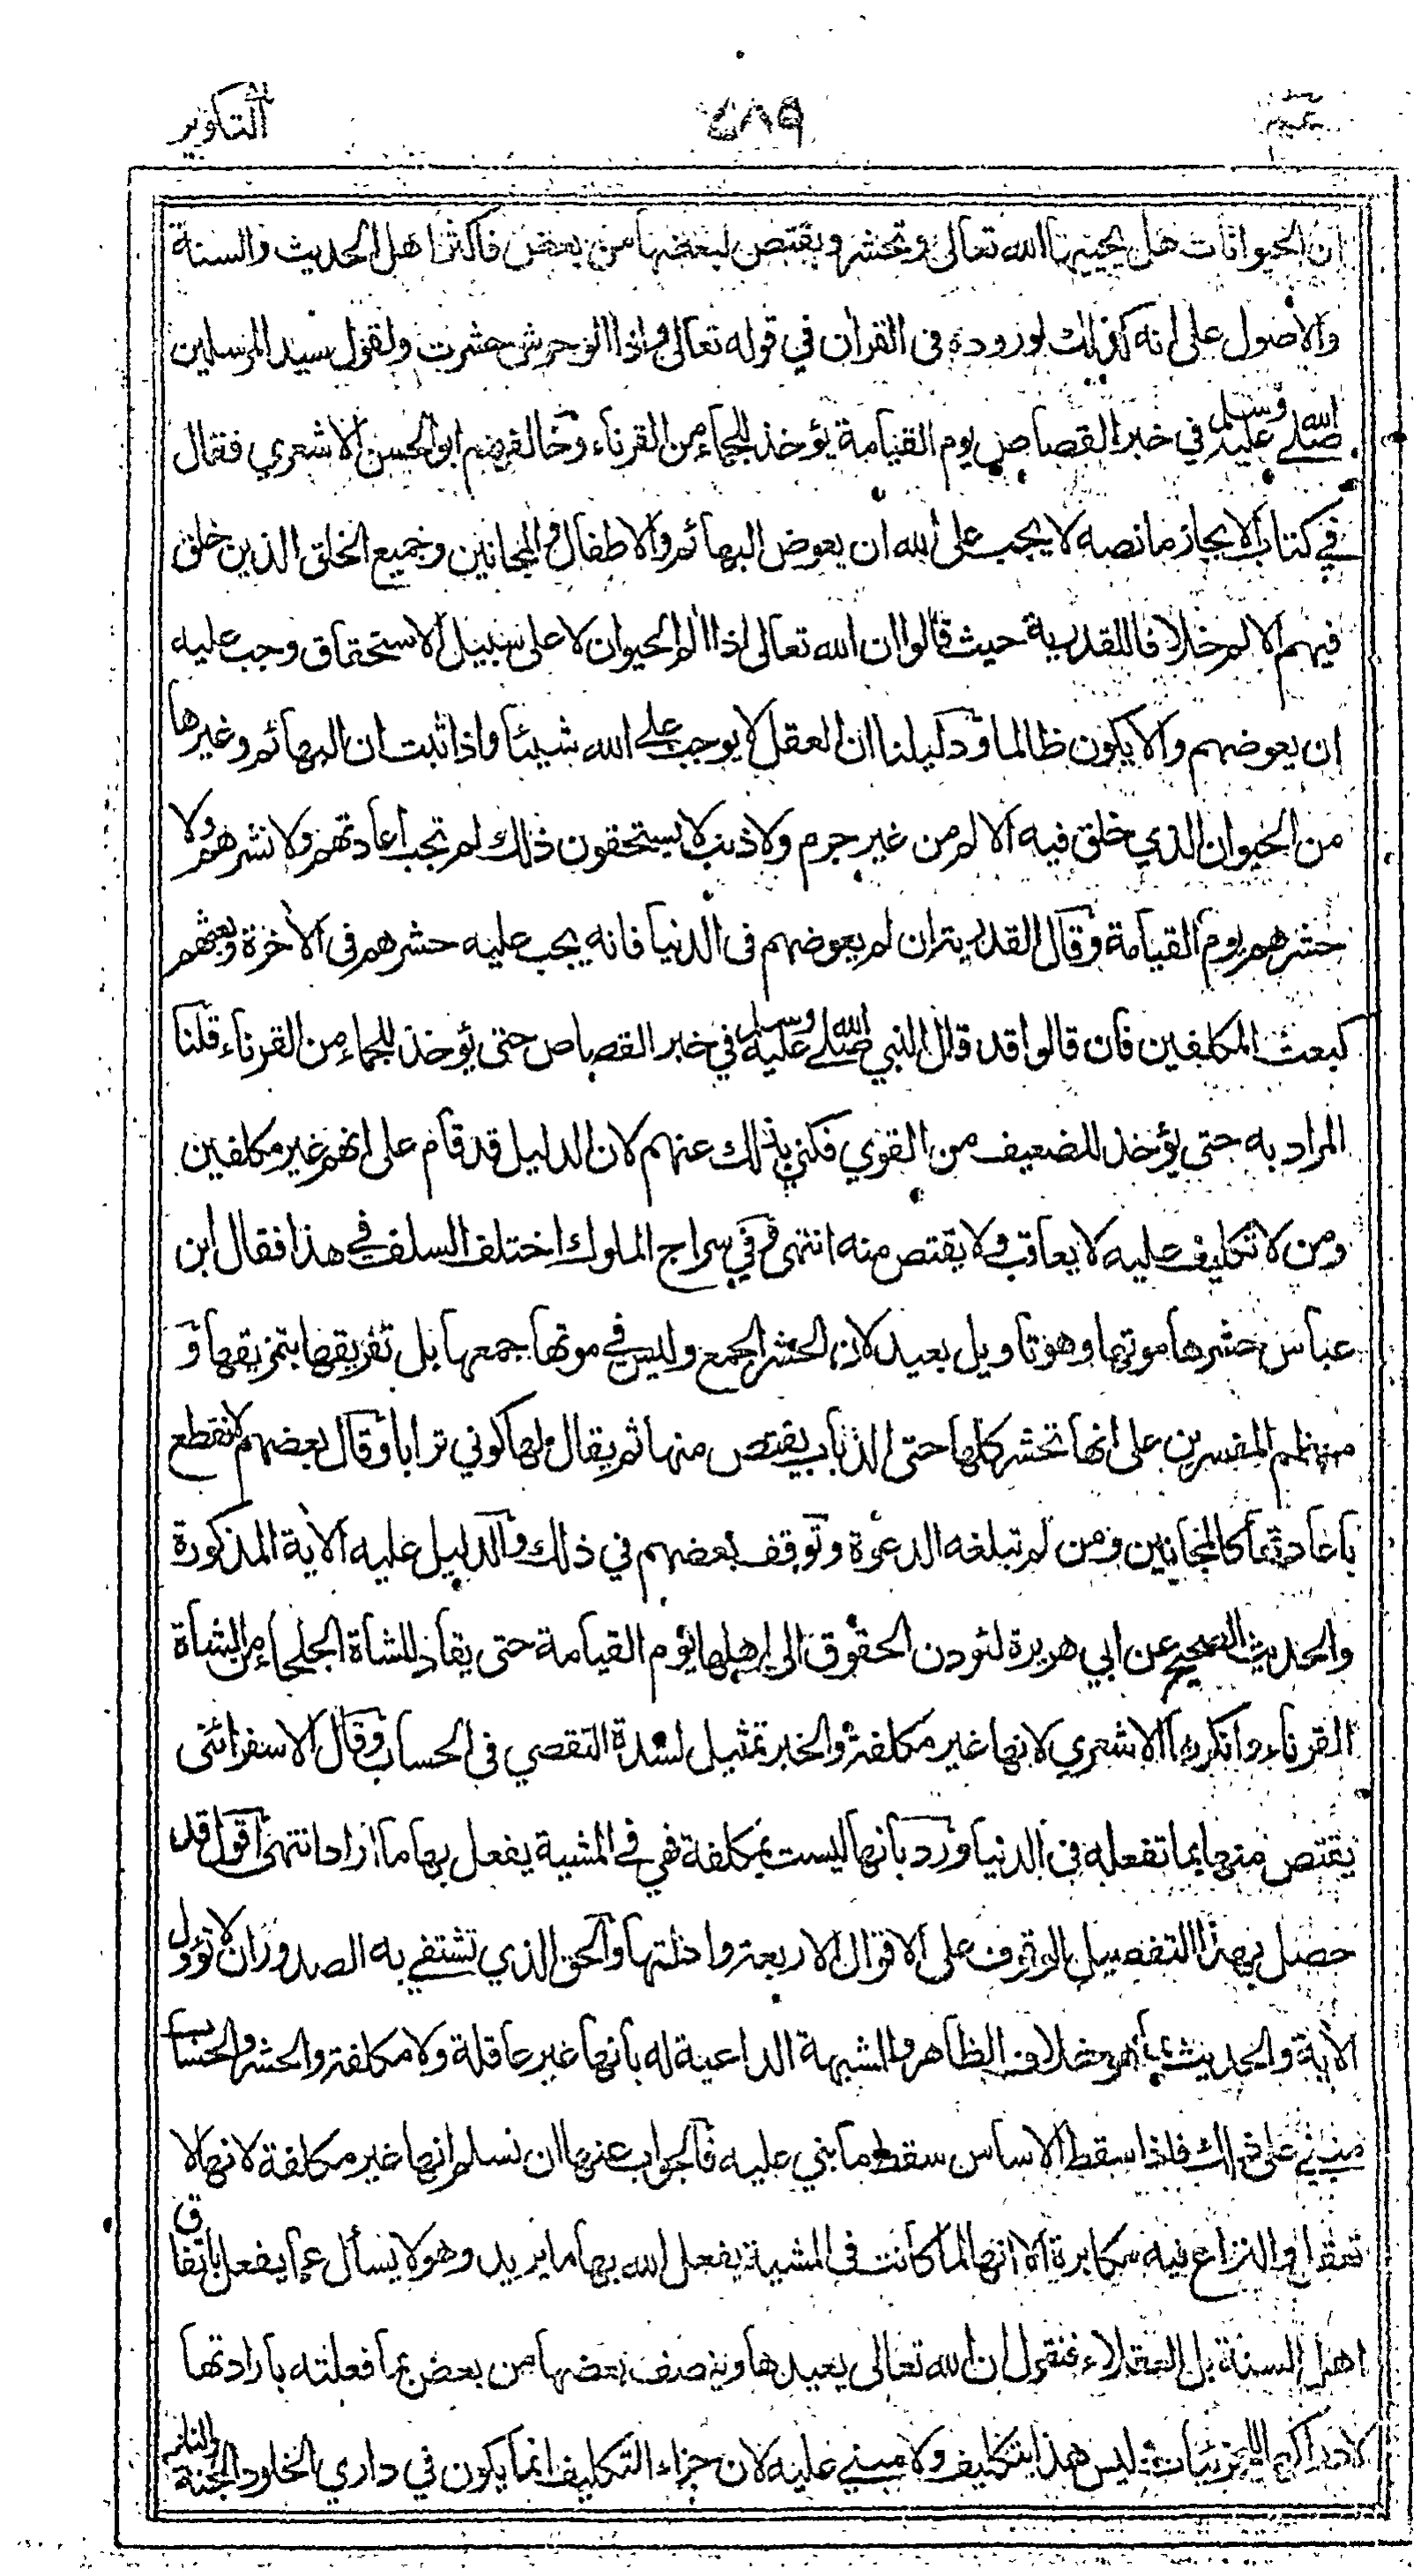 عم ٤٨٩ التكوير
ان الحيوانات هل يحييها الله تعالى وتحشر ويقتص لبعضها من بعض فاكثر اهل الحديث والسنة
والاصول على انه كذلك لوروده فى القران في قوله تعالى واذا الوحوش حشرت ولقول سيد المرسلين
صلى الله عليه وسلم في خبر القصاص يوم القيامة يؤخذ للجماء من القرناء وخالفهم ابو الحسن الاشعري فقال
في كتاب الايجاز ما نصه لا يجب على الله ان يعوض البهائم والاطفال والمجانين وجميع الخلق الذين خلق
فيهم الالم خلافا للقدرية حيث قالوا ان الله تعالى اذا الم الحيوان لا على سبيل الاستحقاق وجب عليه
ان يعوضهم والا يكون ظالما ودليلنا ان العقل لا يوجب على الله شيئا واذا ثبت ان البهائم وغيرها
من الحيوان الذي خلق فيه الالم من غير جرم ولا ذنب لا يستحقون ذلك لم تجب اعادتهم ولا نشرهم ولا
حشرهم يوم القيامة وقال القدرية ان لم يعوضهم فى الدنيا فانه يجب عليه حشرهم فى الاخرة وبعثهم
كبعث المكلفين فان قالوا قد قال النبي صلى الله عليه وسلم في خبر القصاص حتى يؤخذ للجماء من القرناء قلنا
المراد به حتى يؤخذ للضعيف من القوي فكني بذلك عنهم لان الدليل قد قام على انهم غير مكلفين
ومن لا تكليف عليه لا يعاقب ولا يقتص منه انتهى وفي سراج الملوك اختلف السلف في هذا فقال ابن
عباس حشرها موتها وهو تاويل بعيد لان الحشر الجمع وليس في موتها جمعها بل تفريقها بتمزيقها و
معظم المفسرين على انها تحشر كلها حتى الذباب يقتص منها ثم يقال لها كوني ترابا وقال بعضهم لا نقطع
باعادتها كالمجانين ومن لم تبلغه الدعوة وتوقف بعضهم في ذلك والدليل عليه الاية المذكورة
والحديث الصحيح عن ابي هريرة لتؤدن الحقوق الى اهلها يوم القيامة حتى يقاد للشاة الجلحاء من الشاة
القرناء وانكره الاشعري لانها غير مكلفة والخبر تمثيل لشدة التقصي فى الحساب وقال الاسفرائنى
يقتص منها بما تفعله فى الدنيا ورد بانها ليست بمكلفة فهي في المشية يفعل بها ما اراد انتهى اقول قد
حصل بهذا التفصيل الوقوف على الاقوال الاربعة وادلتها والحق الذي تشتفي به الصدور ان لا نؤول
الاية والحديث بما هو خلاف الظاهر والشبهة الداعية له بانها غير عاقلة ولا مكلفة والحشر والحساب
مبني على ذلك فاذا سقط الاساس سقط ما بني عليه فالجواب عنها ان نسلم انها غير مكلفة لانها لا
تعقل والنزاع فيه مكابرة الا انها لما كانت فى المشية يفعل الله بها ما يريد وهو لا يسأل عما يفعل باتفاق
اهل السنة بل العقلاء فنقول ان الله تعالى يعيدها وينصف بعضها من بعض بما فعلته بارادتها
لادراكها للجزئيات ليس هذا بتكليف ولا مبني عليه لان جزاء التكليف انما يكون في داري الخلود الجنة والنار